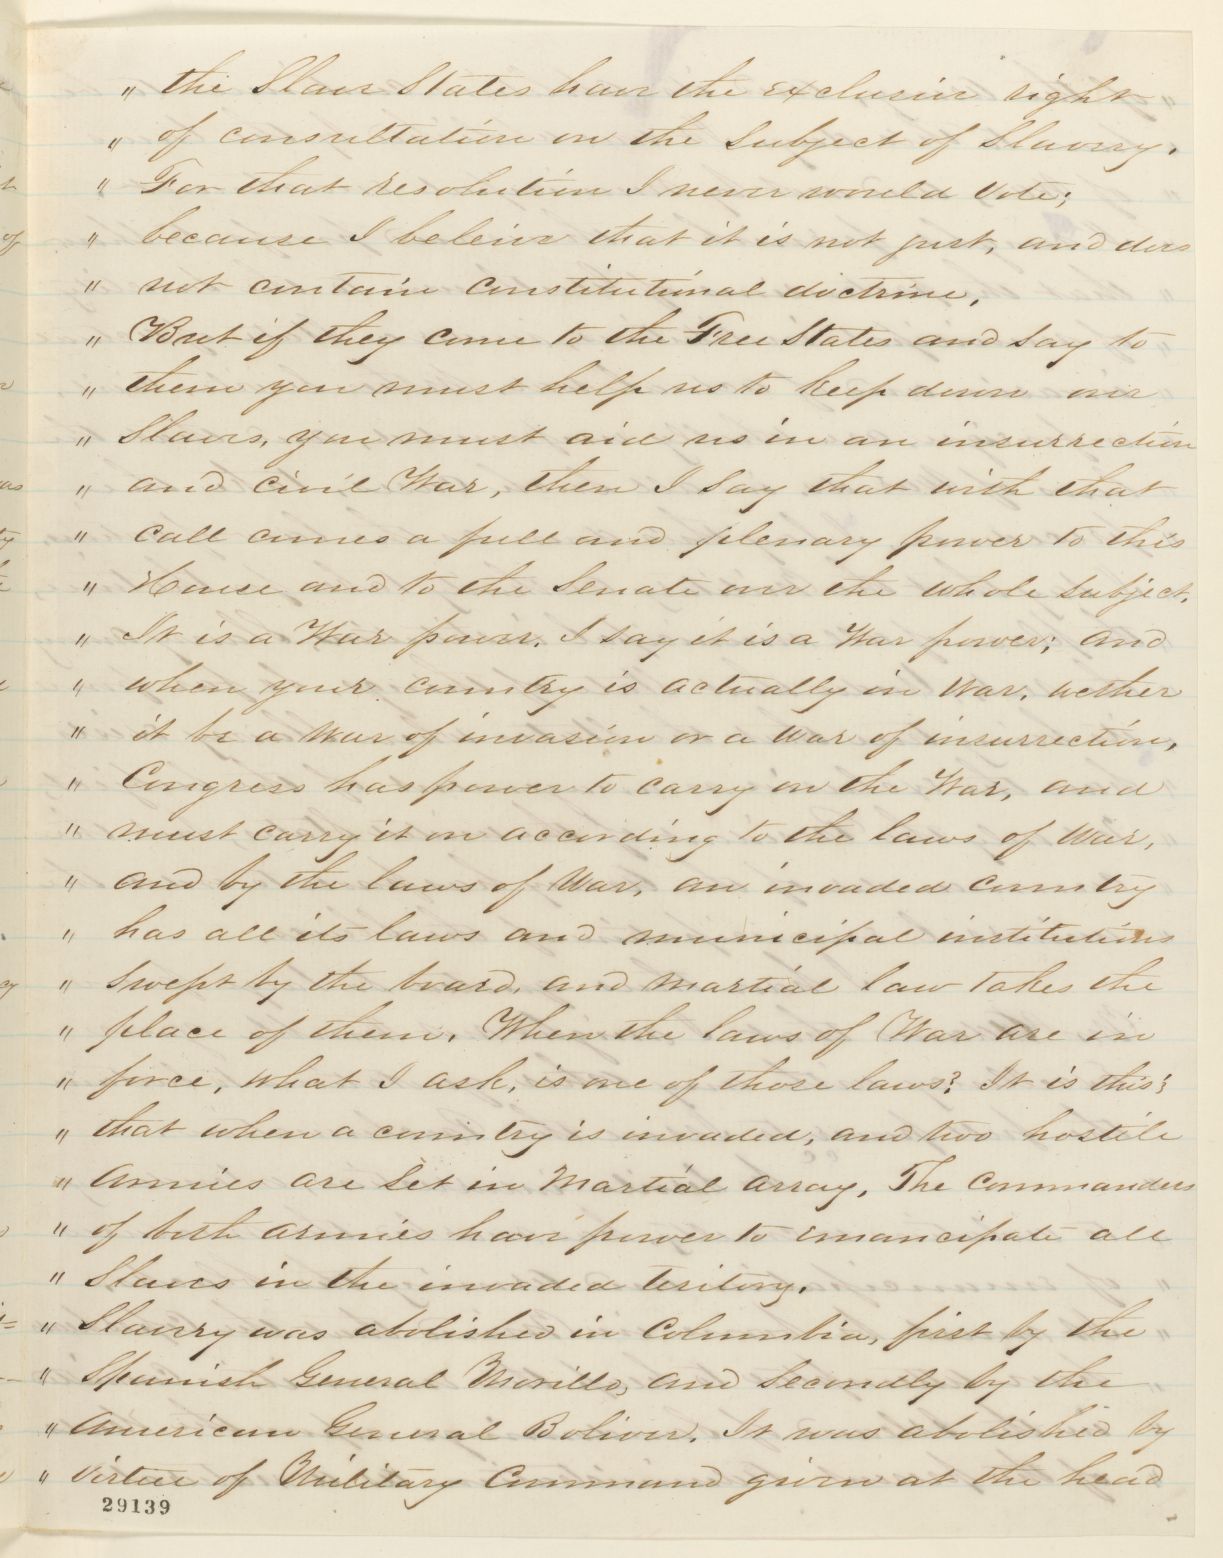 " the Slave States have the exclusive right
" of consultation on the Subject of Slavery.
" For that resolution I never would Vote;
" because I beleive that it is not just, and does
" not contain Constitutional doctrine,
" But if they come to the Free States and say to
" them you must help us to keep down our
" Slaves, you must aid us in an insurrection
" and civil War, then I say that with that
" call comes a full and plenary power to this
" House and to the Senate over the whole subject.
" It is a War power. I say it is a War power; and
" when your country is actually in War, wether
" it be a War of invasion or a War of insurrection,
" Congress has power to carry on the War, and
" must carry it on according to the laws of War,
" and by the laws of War, an invaded Country
" has all its laws and municipal institutions
" swept by the board, and Martial law takes the
" place of them. When the laws of War are in
" force, what I ask, is one of those laws? It is this;
" that when a country is invaded, and two hostile
" Armies are Set in Martial array, The Commanders
" of both armies have power to emancipate all
" Slaves in the invaded teritory.
" Slavery was abolished in Columbia, first by the
" Spanish General Morillo, and Secondly by the
" American General Boliver. It was abolished by
" Virtue of Military Command given at the head
29139